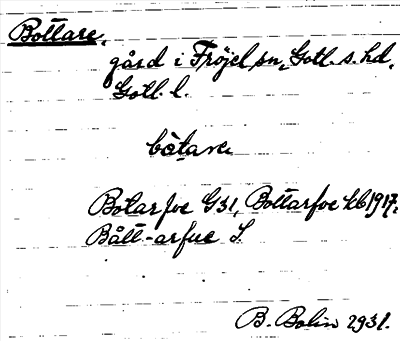 Bottare,
gård i Fröjel sn, Gotl. s. hd,
Gotl. l.
bòtare
Botarfve G31, Bottarfve kb 1917,
Bått-arfue S.
B. Bolin 1931.